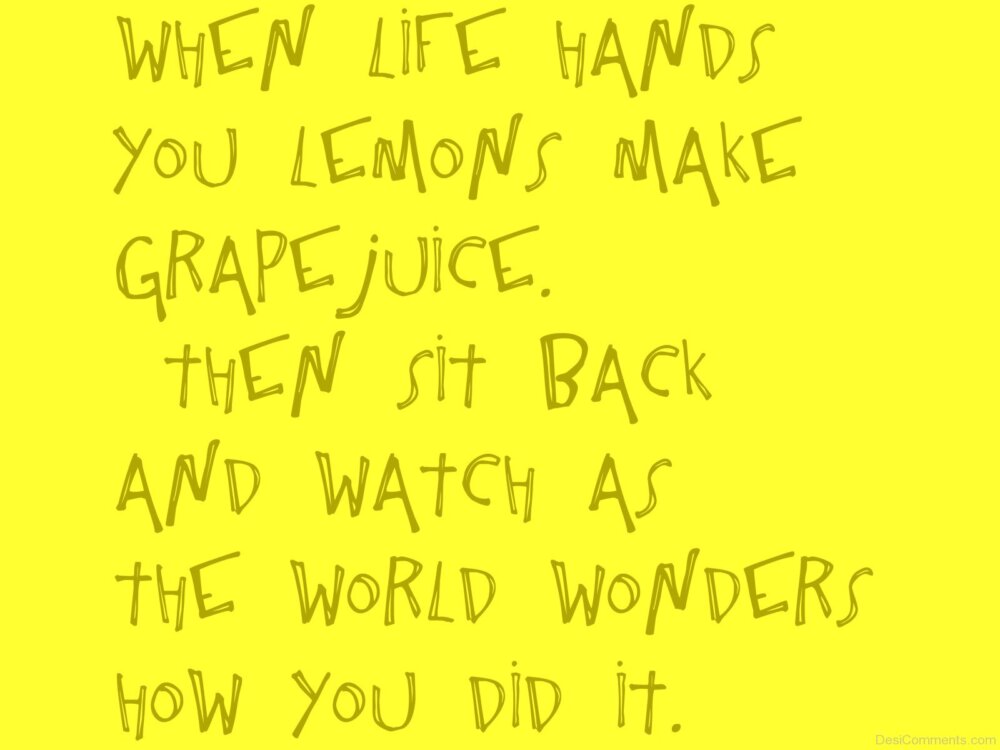 WHEN LiFE HANDS
YOU LEMONS MAKE
GRAPE jUiCE.
THEN SiT BACK
AND WATCH AS
THE WORLD WONDERS
HOW YOU DiD iT.
DesiComments.com